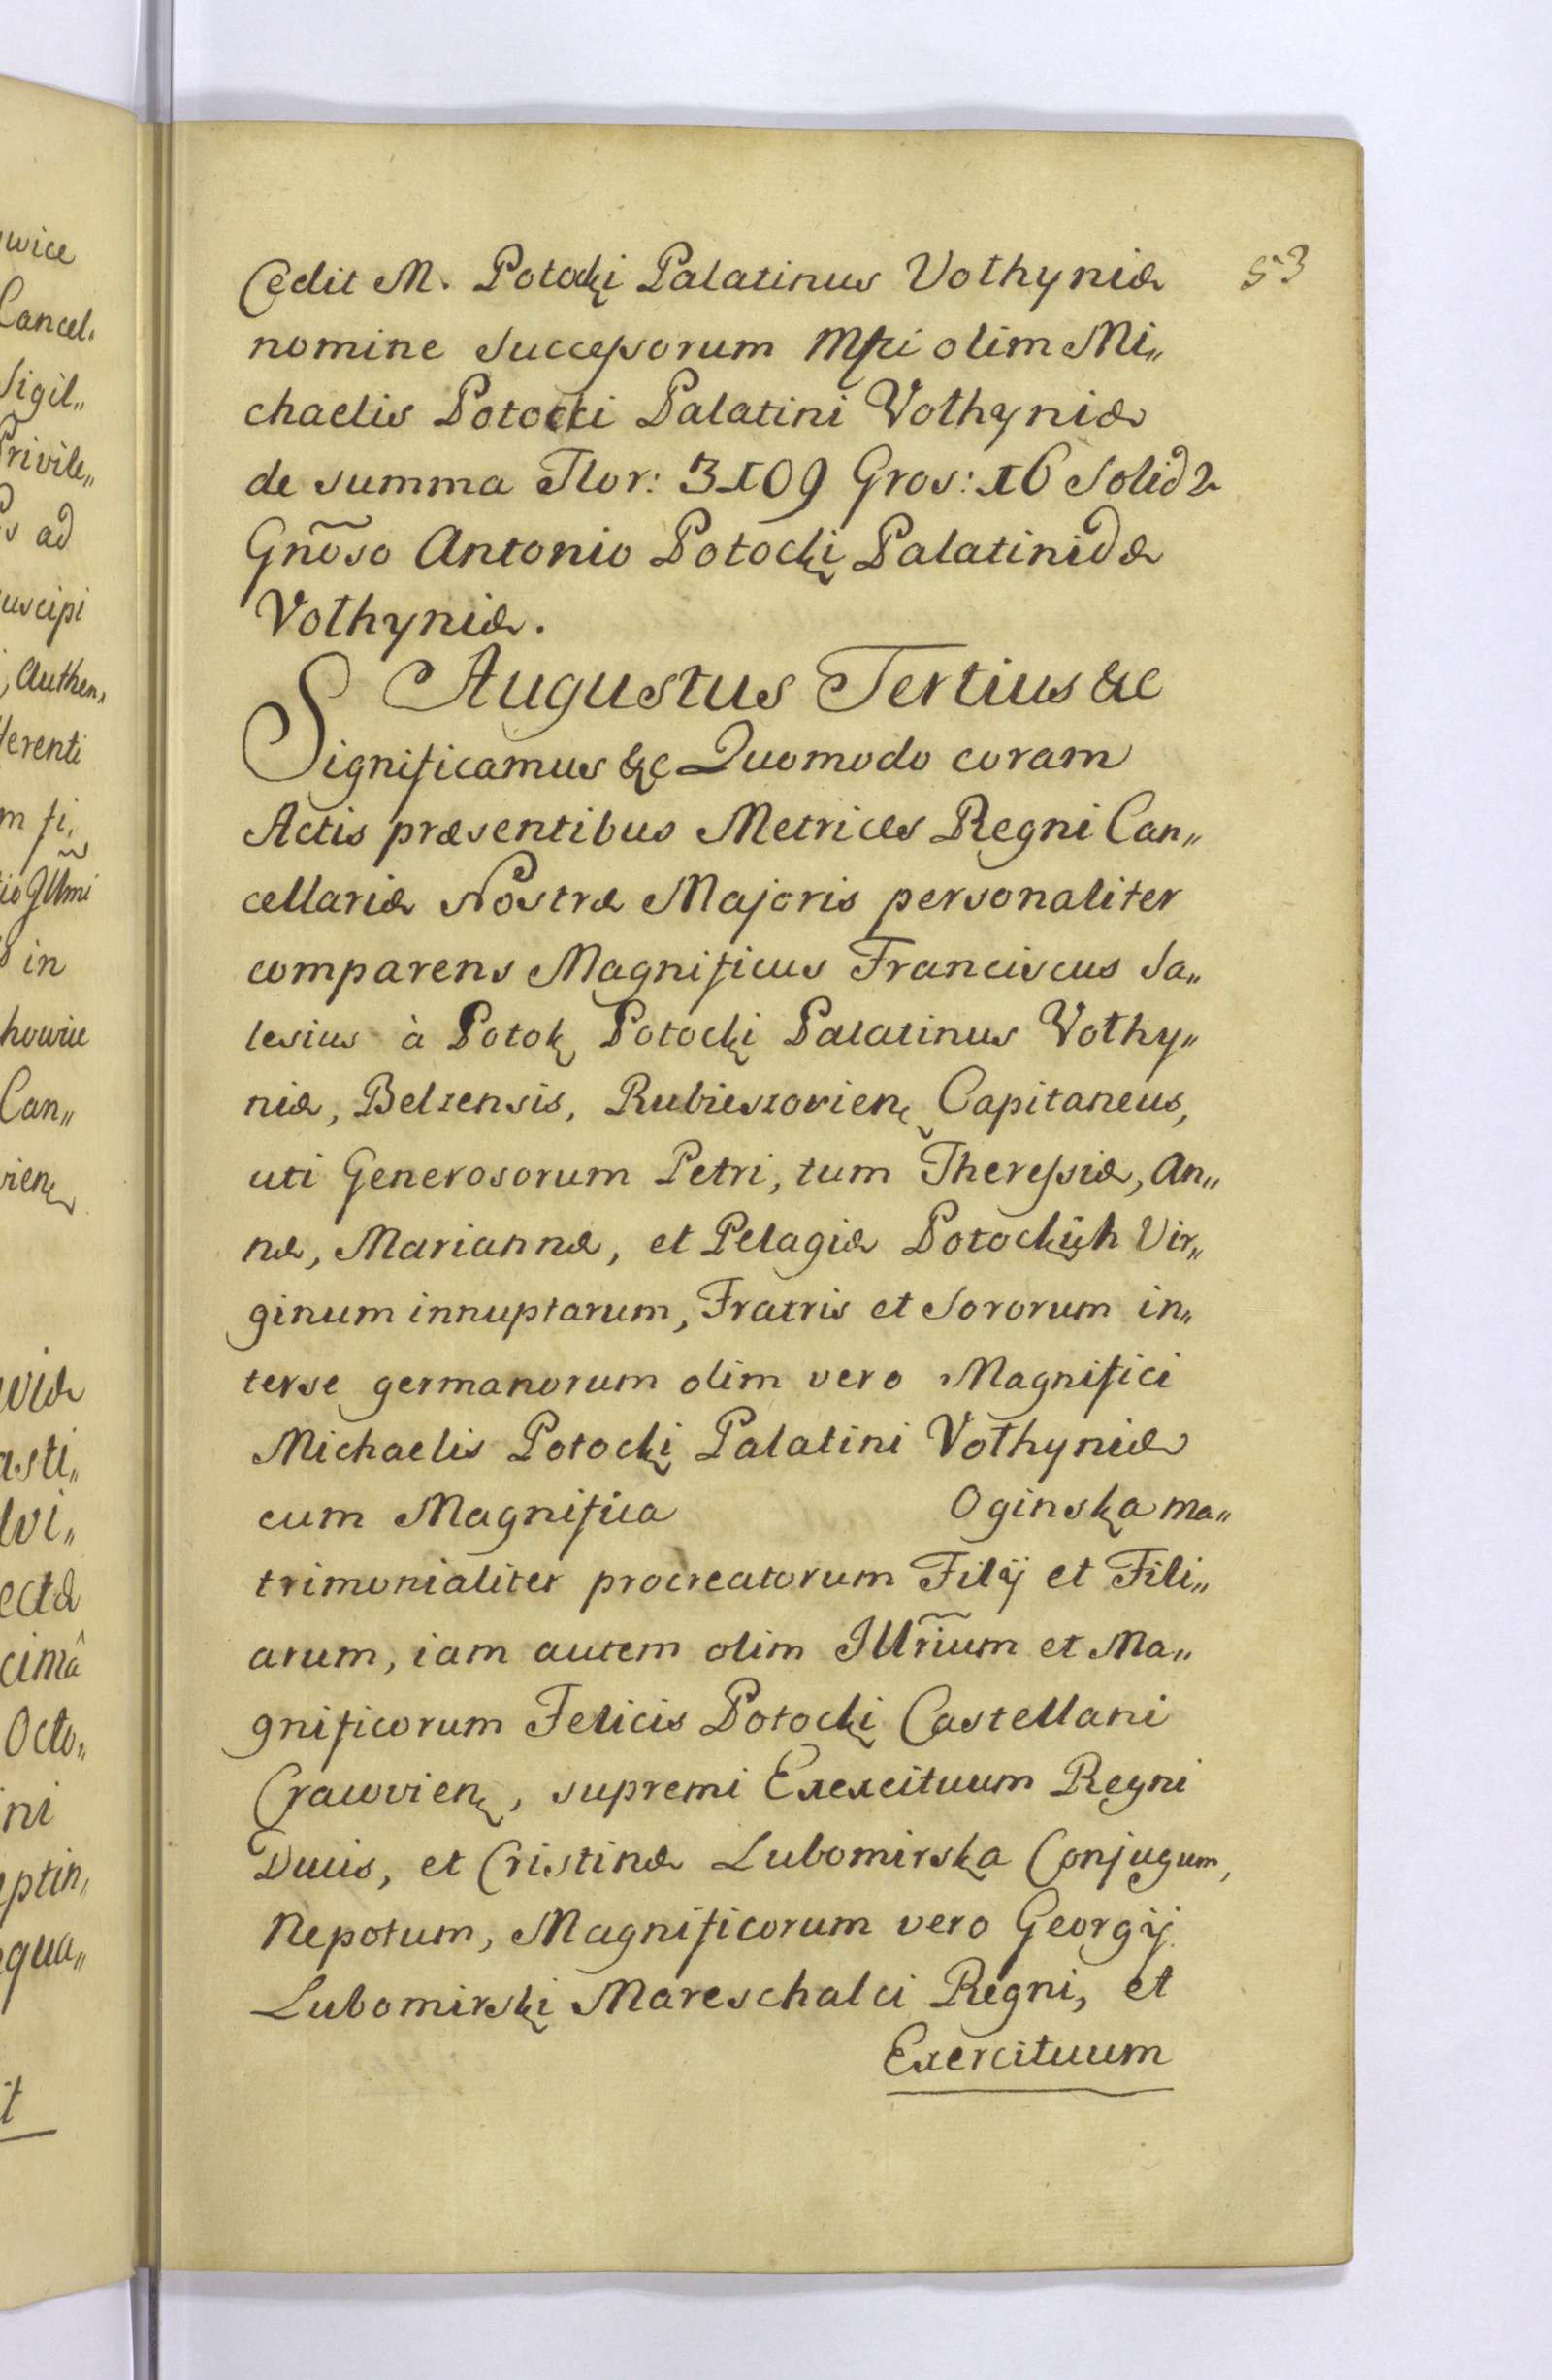 Cedit M. Potocki Palatinus Volhyniæ 53
nomine Successorum Mfci olim Mi„
chaelis Potocki Palatini Volhyniæ
de summa Flor: 3109 Gros: 16 Solid 2
Gnõso Antonio Potocki Palatinidæ
Volhyniæ.
Augustus Tertius &c
Significamus &c Quomodo coram
Actis præsentibus Metrices Regni Can„
cellariæ Nostræ Majoris personaliter
comparens Magnificus Franciscus Sa„
lesius à Potok Potocki Palatinus Volhy„
niæ, Belzensis, Rubieszovien Capitaneus,
uti Generosorum Petri, tum Theressiæ, An„
næ, Mariannæ, et Pelagiæ Potockich Vir„
ginum innuptarum, Fratris et Sororum in„
terse germanorum olim vero Magnifici
Michaelis Potocki Palatini Volhyniæ
cum Magnifica Oginska ma„
trimonialiter procreatorum Filij et Fili„
arum, iam autem olim Illrĩum et Ma„
gnificorum Felicis Potocki Castellani
Cracovien, supremi Exercituum Regni
Ducis, et Cristinæ Lubomirska Conjugum,
Nepotum, Magnificorum vero Georgij
Lubomirski Mareschalci Regni, et
Exercituum